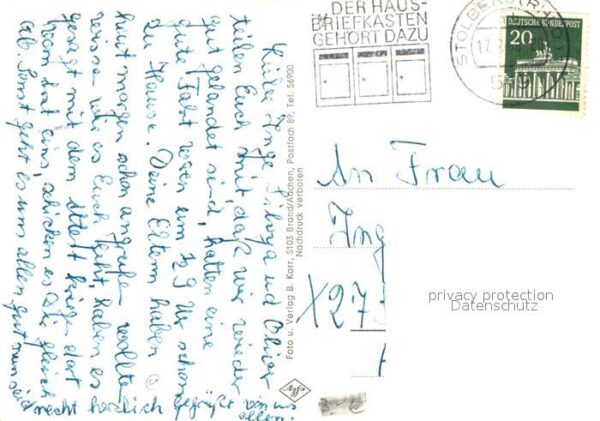 Liebe Inge, und Oliver
teilen Euch mit daß wir wieder
gut gelandet sind, hatten eine
gute Fahrt waren um ½9 Uhr schon
zu Hause. Deine Eltern haben
heut morgen schon angerufen wollten
wissen wie es Euch geht, haben es
gesagt mit dem dort
wann hat eins, schicken es Dir gleich
ab. Sonst geht es uns allen gut nun seid
recht herzlich gegrüßt von uns
allen.
Foto u. Verlag B. Korr, 5103 Brand/Aachen, Postfach 89, Tel. 56900
Nachdruck verboten
Agfa
DER HAUS-
BRIEFKASTEN
GEHÖRT DAZU
STOLBERG (RHLD)
17.
DEUTSCHE BUNDESPOST
20
An Frau
Ing
X27
privacy protection
Datenschutz